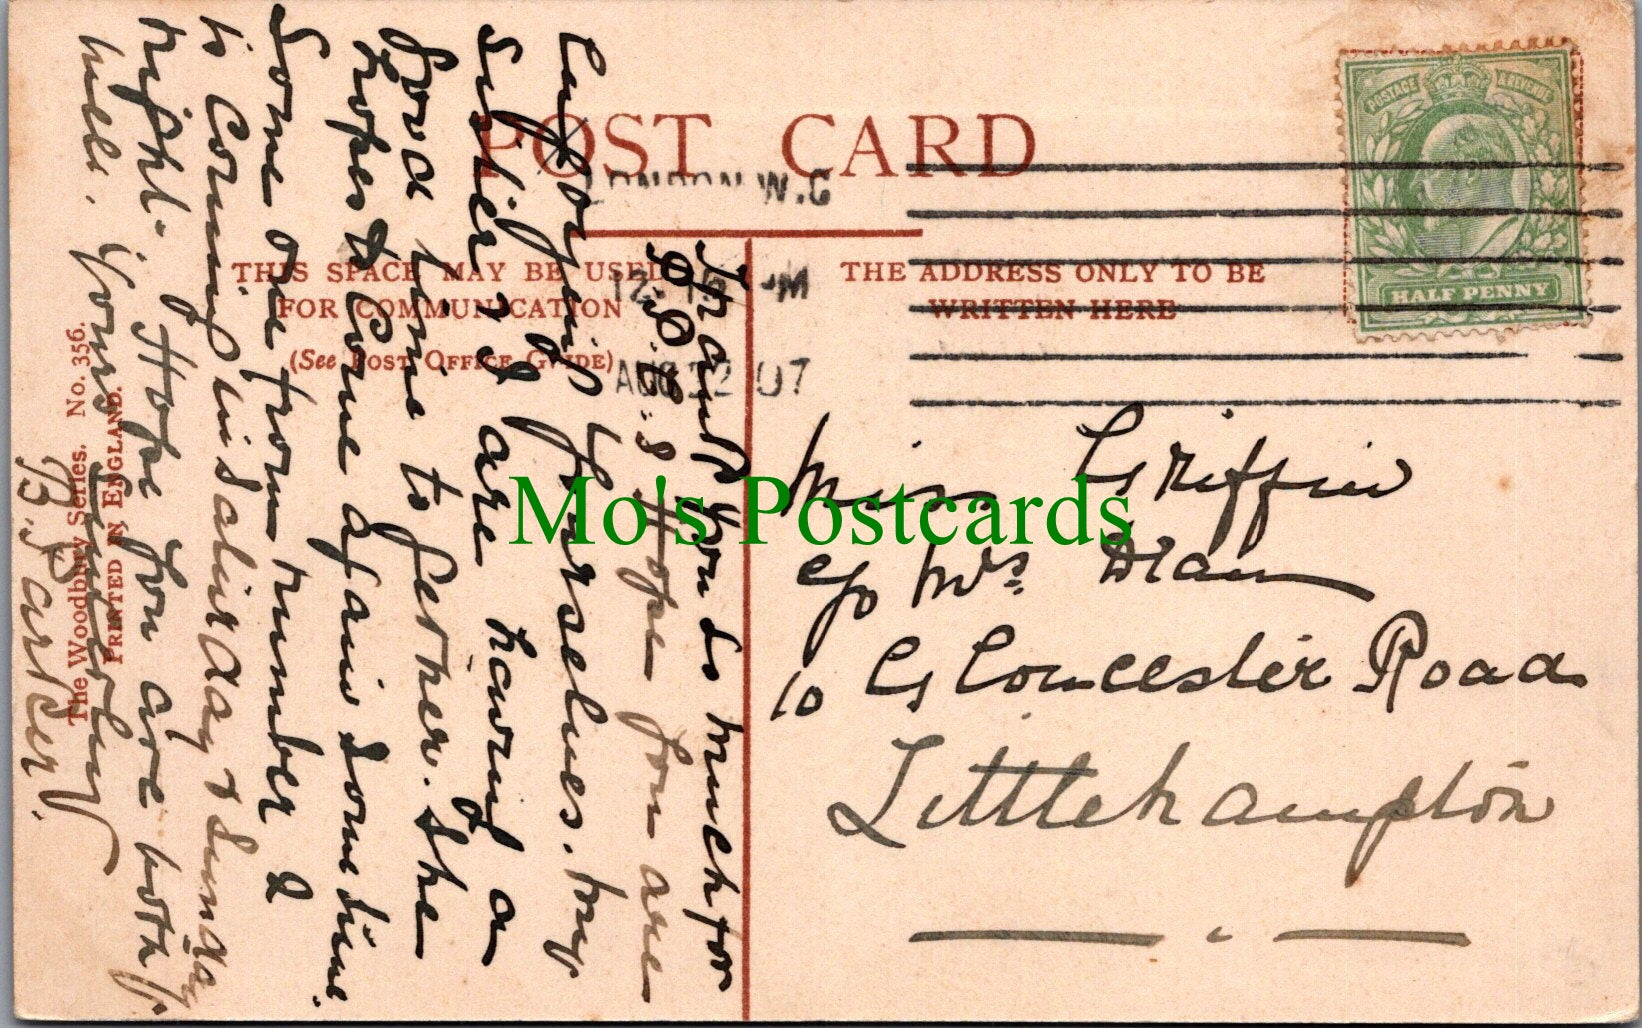 POST CARD
LONDON W.C
12.15 PM
AUG 12 07
THIS SPACE MAY BE USED
FOR COMMUNICATION
(See Post Office Guide)
THE ADDRESS ONLY TO BE
WRITTEN HERE
POSTAGE & REVENUE
HALF PENNY
The Woodbury Series. No. 356.
Printed in England.
Mo's Postcards
Miss Griffin
c/o Mrs
10 Gloucester Road
Littlehampton
Thank you so much for
P.P.C.s Hope you are
enjoying yourselves. my
Sister & I are having a
Good time to gether. She
hopes to Come again some time.
Some one from number 2
is Coming in saturday & Sunday
night. Hope you are both
well. Yours
B. Barker.